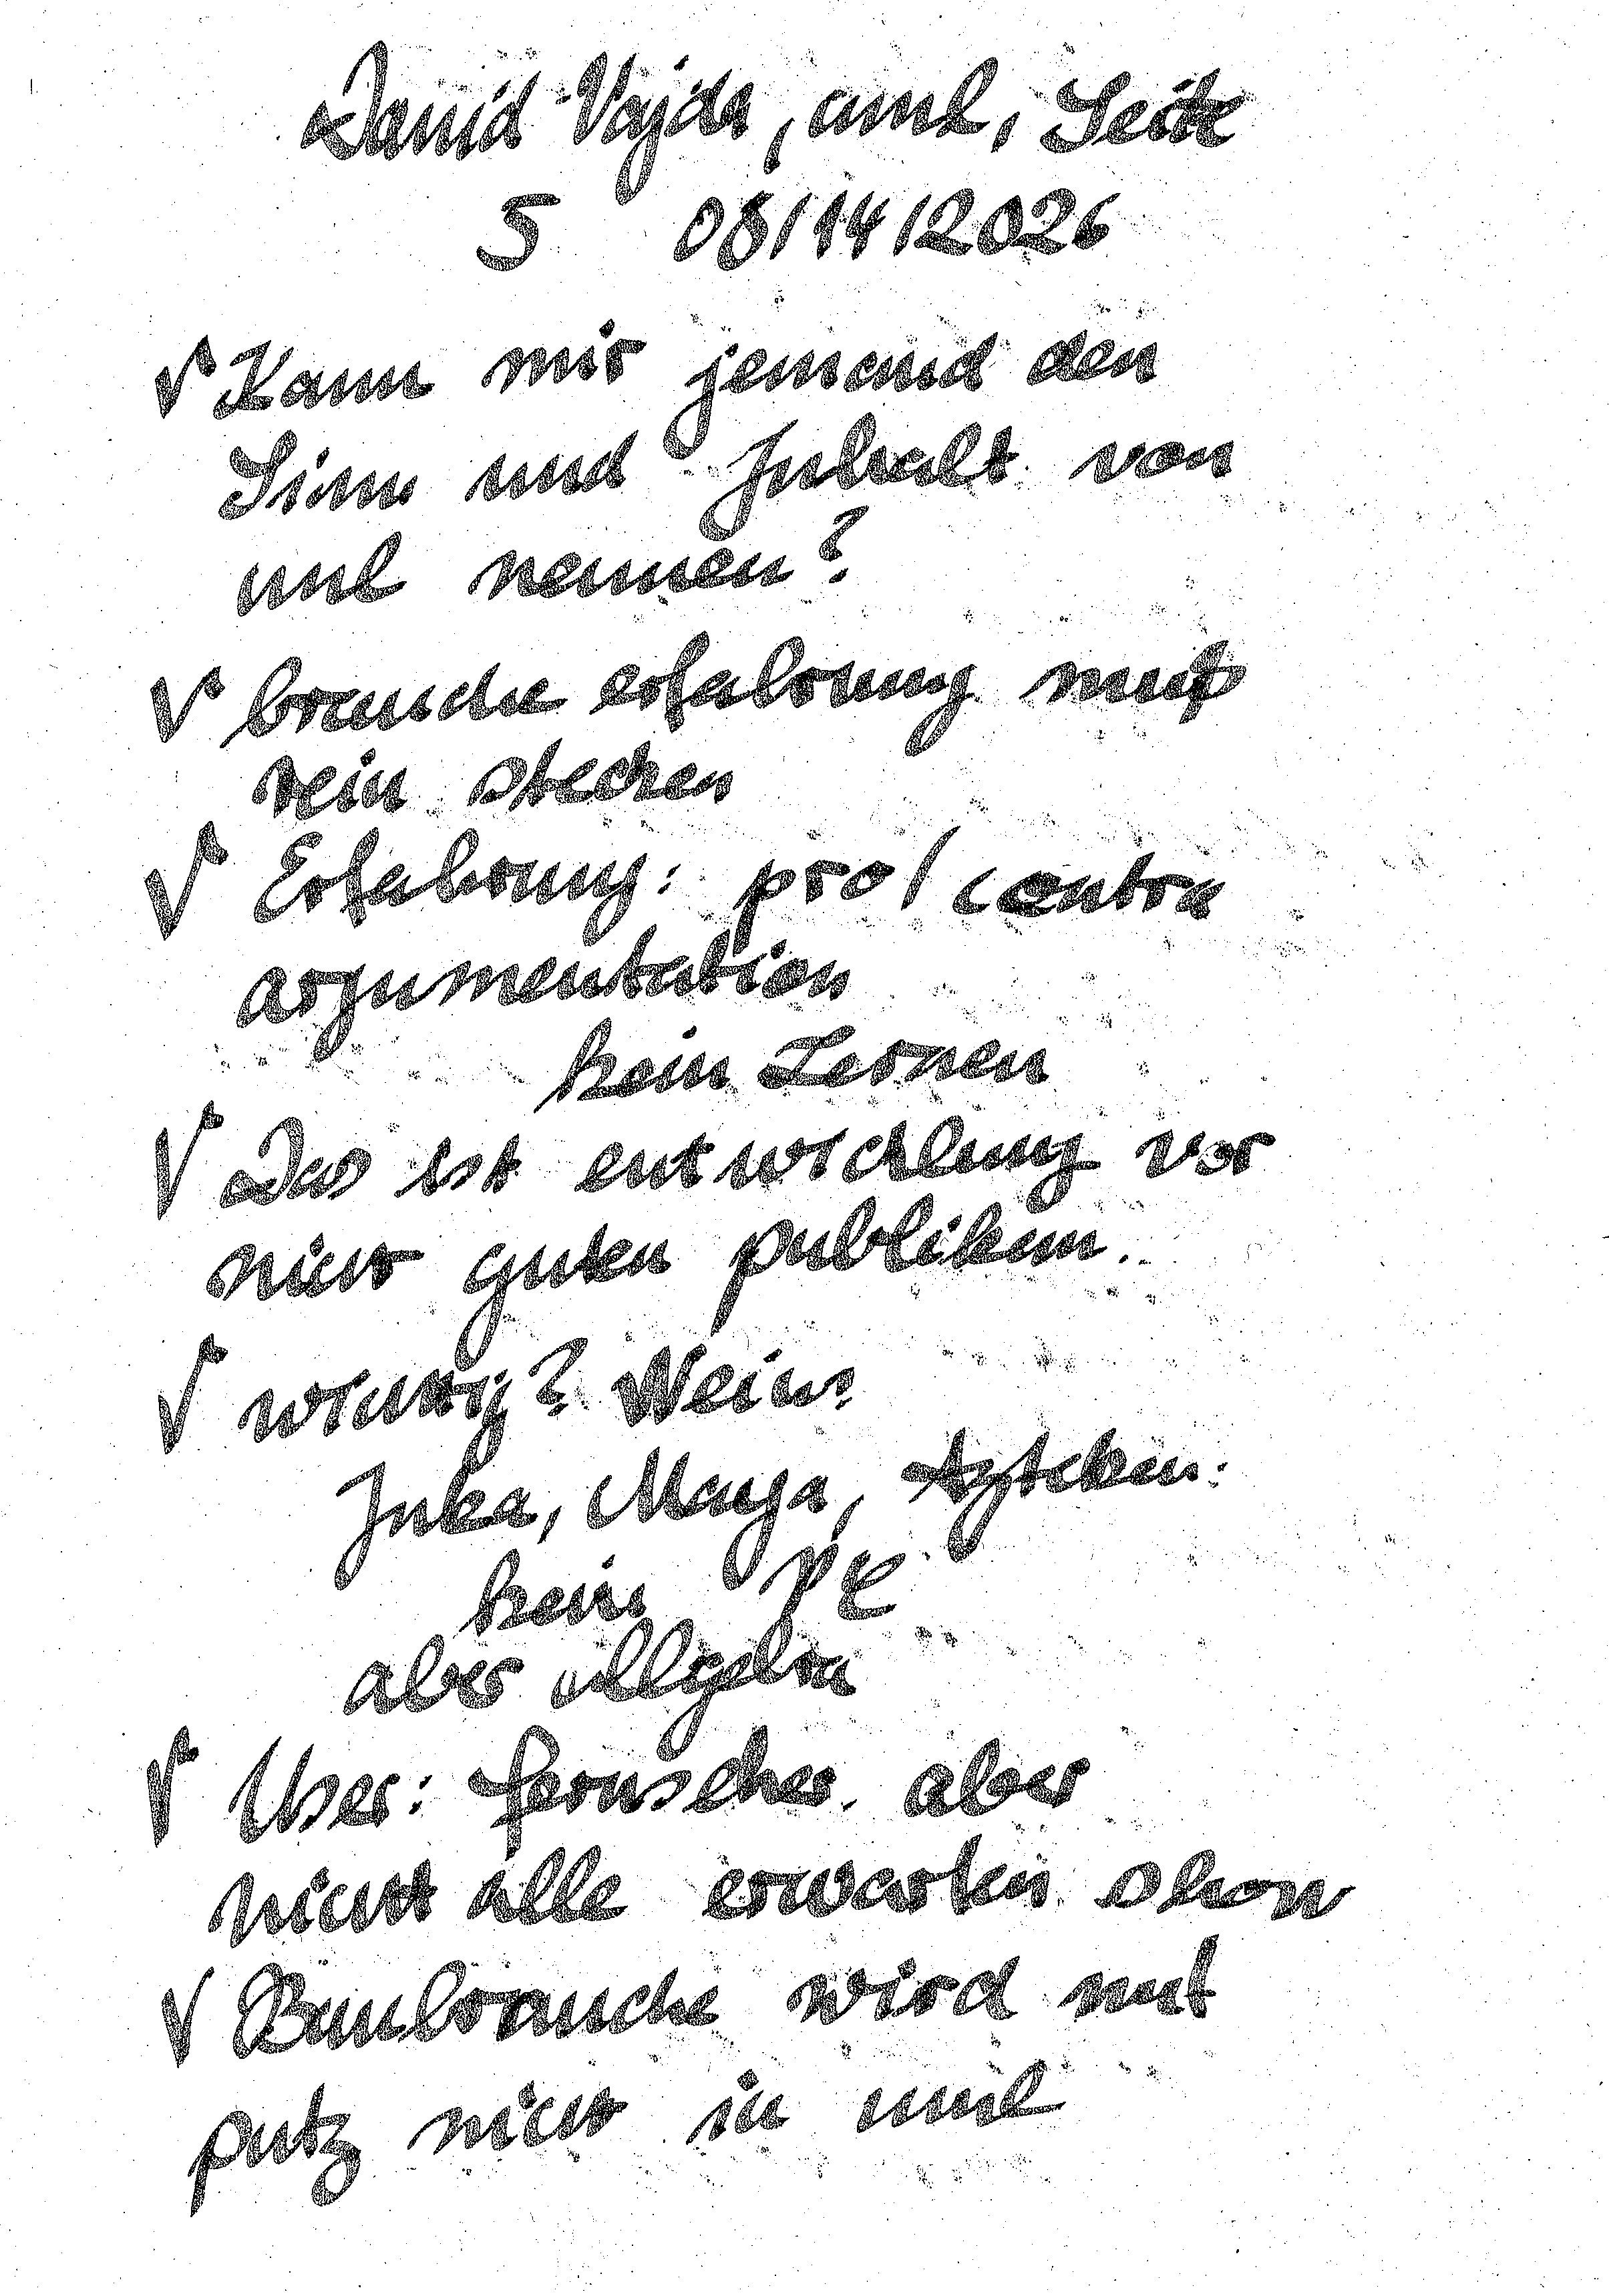 David Vajda, uml, Seite
5 08/14/2026
√ Kann mir jemand den
Sinn und Inhalt von
uml nennen?
√ branche erfahrung muß
rein stecken
√ Erfahrung: pro/contra
argumentation
kein Lernen
√ Das ist entwicklung vor
nicht guten publikum.
√ wichtig? Nein:
Inka, Maya, Azteken:
kein PC
aber allgebra
√ User: fernseher. aber
nicht alle erwarten show
√ Baubranche wird mit
putz nicht in uml